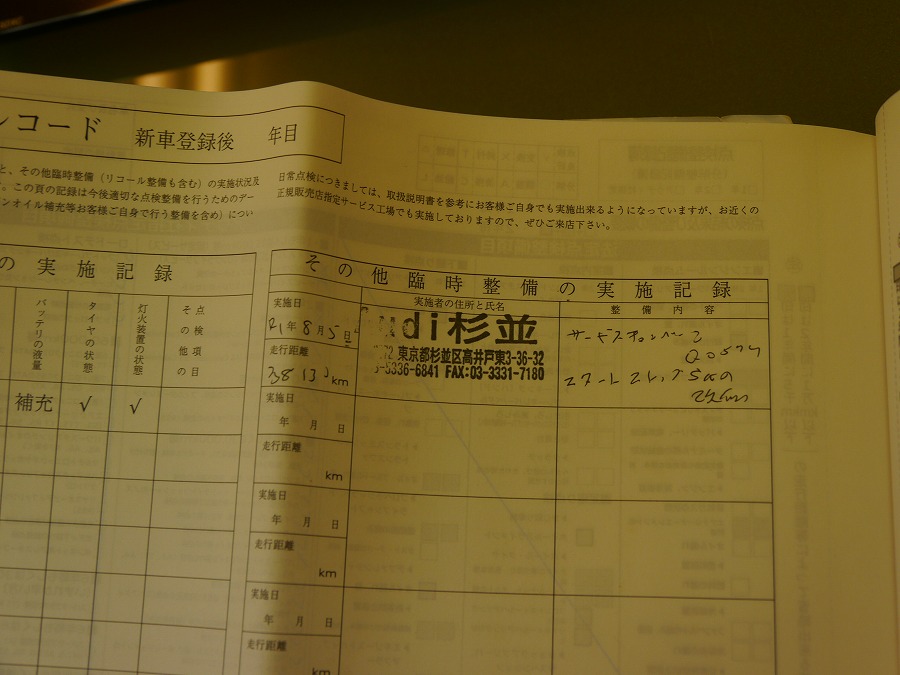 レコード 新車登録後 年目
と、その他臨時整備（リコール整備も含む）の実施状況及
。この頁の記録は今後適切な点検整備を行うためのデー
ンオイル補充等お客様ご自身で行う整備を含め）につい
日常点検につきましては、取扱説明書を参考にお客様ご自身でも実施出来るようになっていますが、お近くの
正規販売店指定サービス工場でも実施しておりますので、ぜひご来店下さい。
の実施記録
バッテリの液量
タイヤの状態
灯火装置の状態
その他の点検項目
補充 √ √
その他臨時整備の実施記録
実施日
実施者の住所と氏名
整備内容
R1年8月5日
走行距離
km
di杉並
東京都杉並区高井戸東3-36-32
3336-6841 FAX:03-3331-7180
サービスキャンペーン
実施日
年 月 日
走行距離
km
実施日
年 月 日
走行距離
km
実施日
年 月 日
走行距離
km